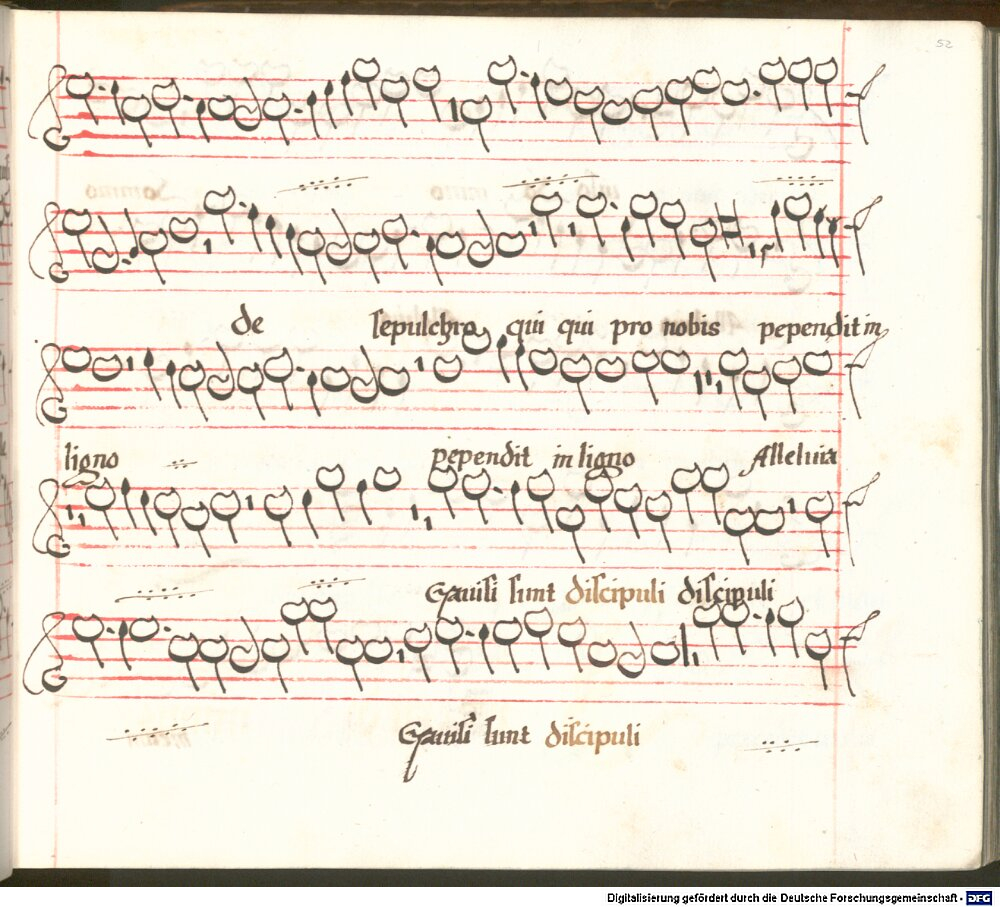 52
de sepulchro qui qui pro nobis pependit in
ligno pependit in ligno Alleluia
Gavisi sunt discipuli discipuli
Gavisi sunt discipuli
Digitalisierung gefördert durch die Deutsche Forschungsgemeinschaft - DFG